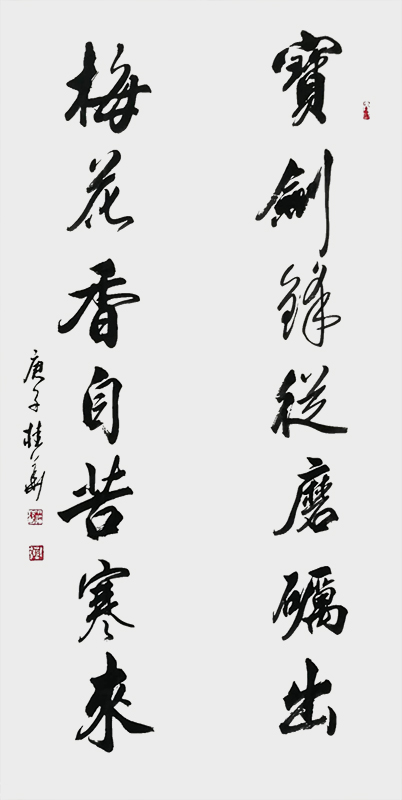 寶劍鋒從磨礪出
梅花香自苦寒來
庚子桂華